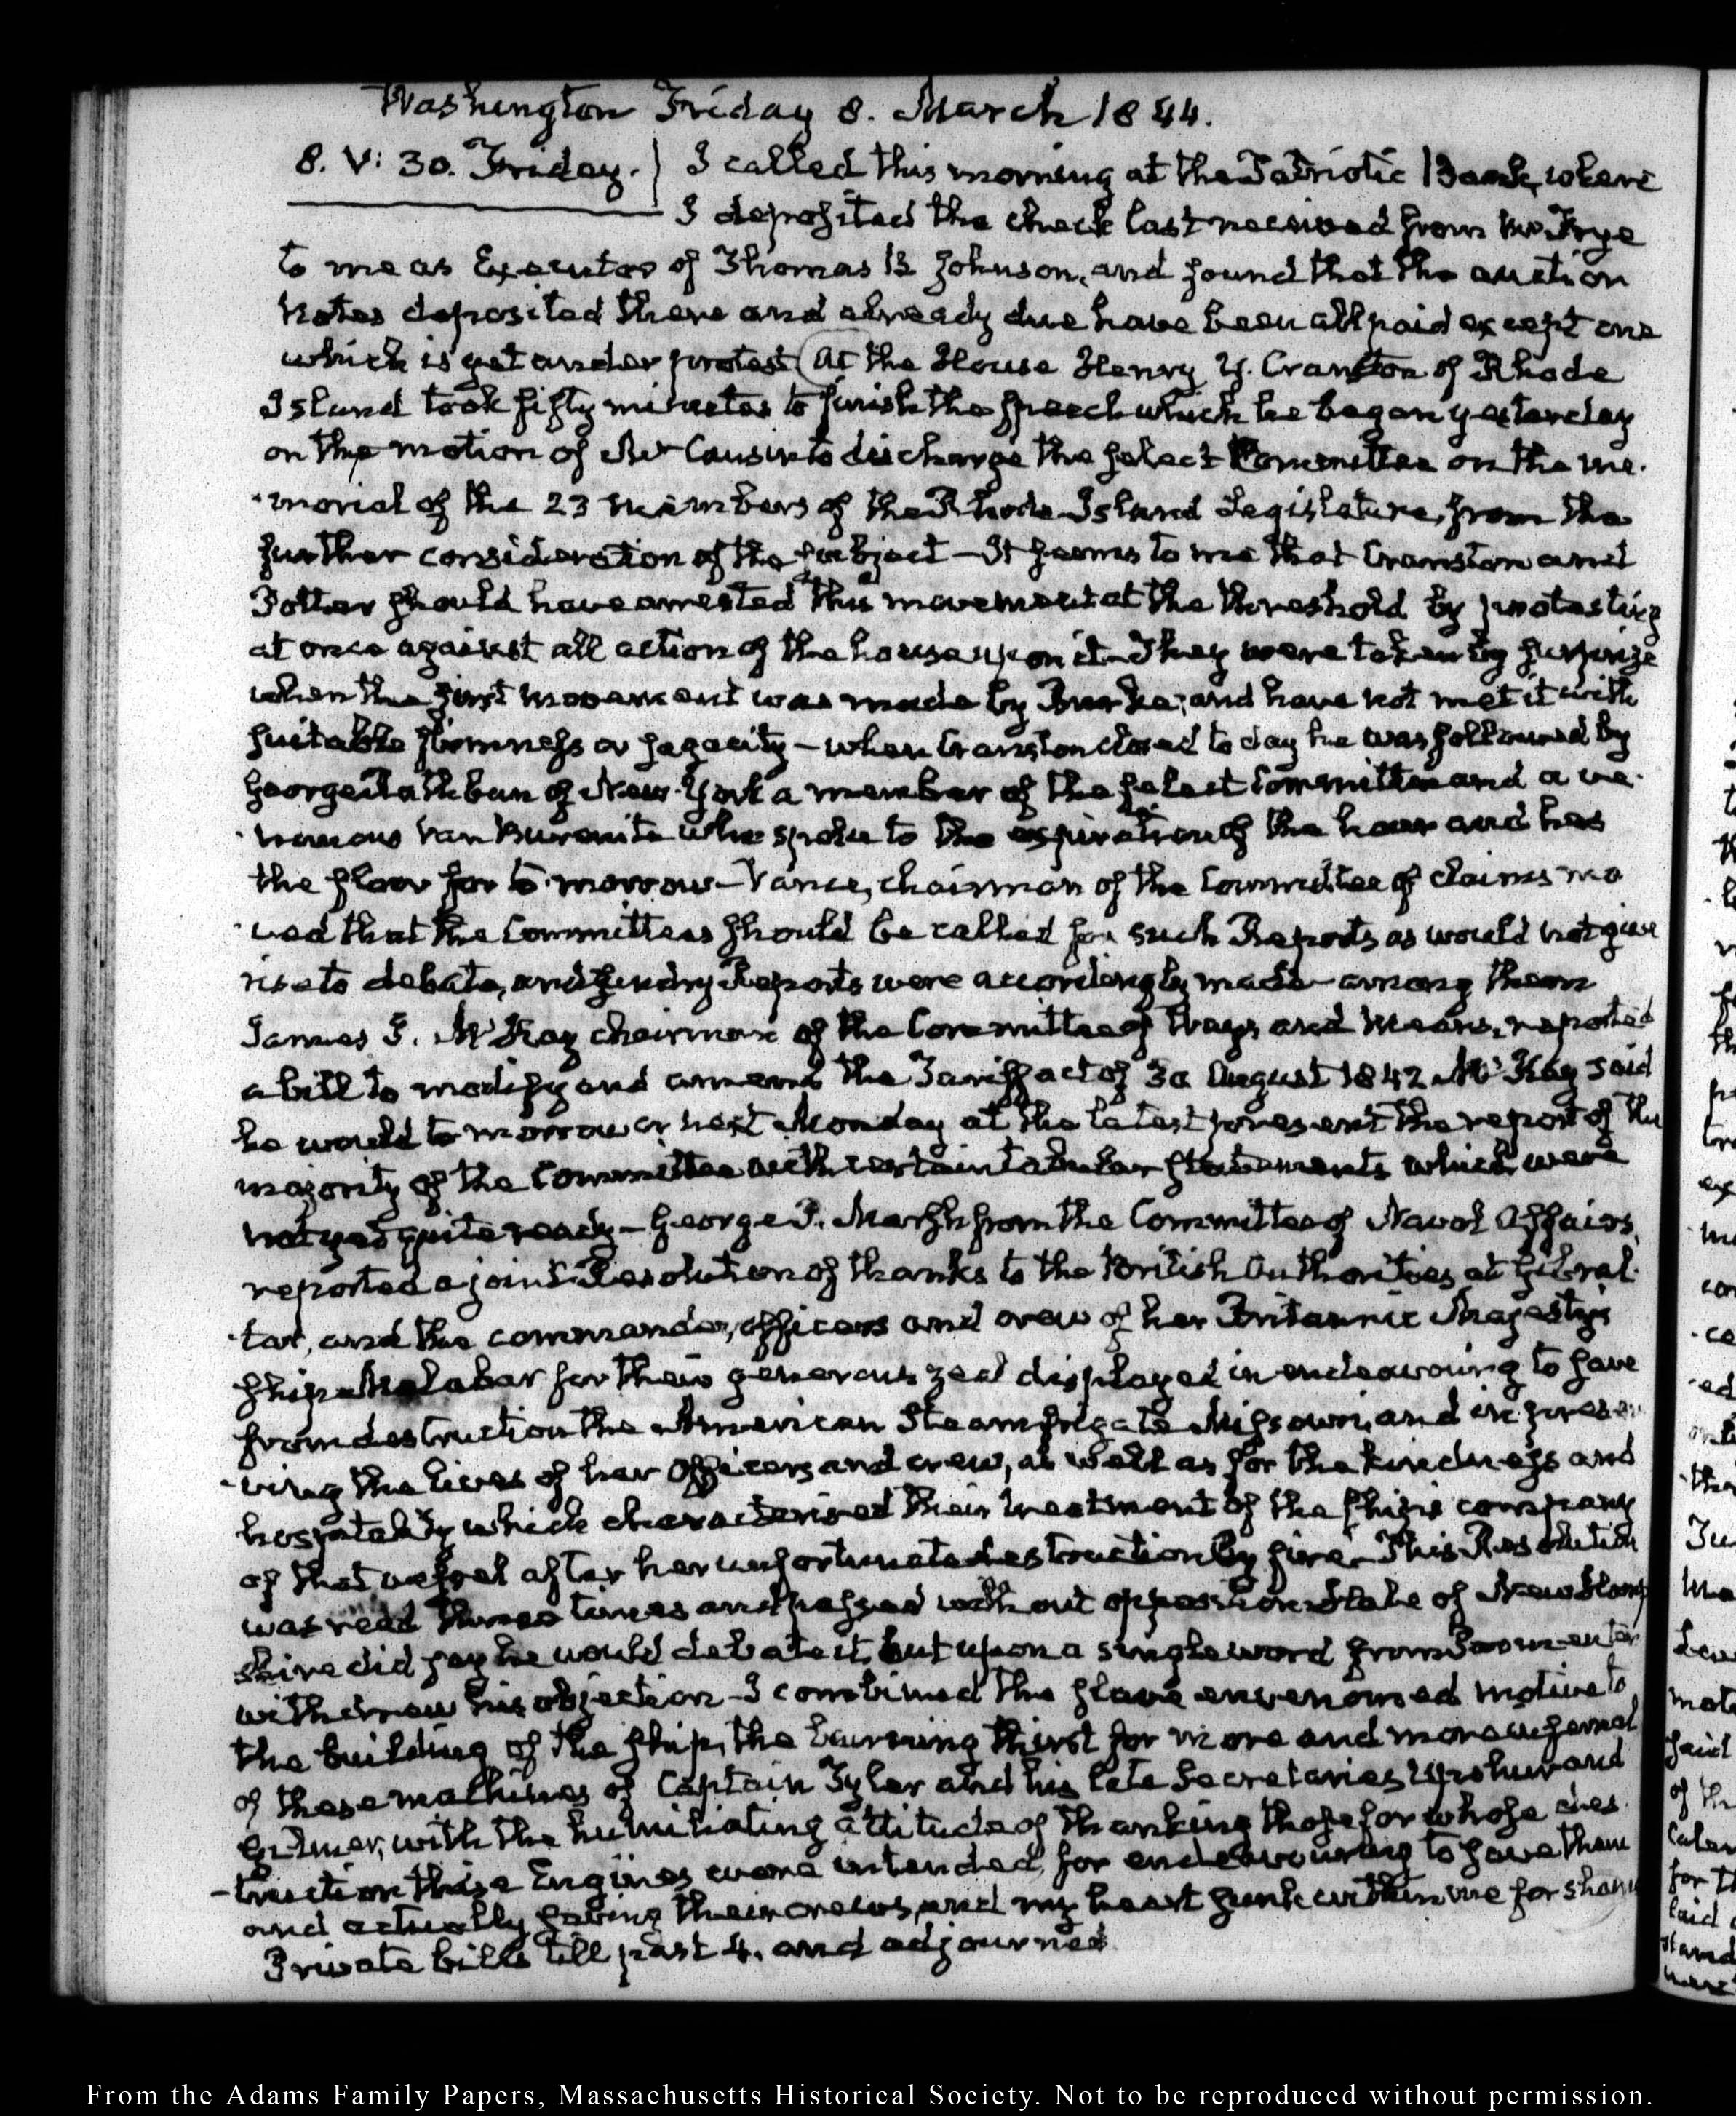 Washington Friday 8. March 1844.
8. V: 30. Friday. I called this morning at the Patriotic Bank, where
I deposited the check last received from Mr Frye
to me as Executor of Thomas B Johnson, and found that the auction
notes deposited there and already due have been all paid except one
which is yet under protest (At the House Henry Y. Cranston of Rhode
Island took fifty minutes to finish the speech which he began yesterday
on the motion of Mr Causin to discharge the select Committee on the me-
-morial of the 23 members of the Rhode-Island Legislature, from the
further consideration of the subject – It seems to me that Cranston and
Potter should have arrested this movement at the threshold by protesting
at once against all action of the house upon it – They were taken by surprize
when the first movement was made by Burke; and have not met it with
suitable firmness or sagacity – when Cranston closed to day he was followed by
George Rathbun of New-York a member of the select Committee and a ve-
-nomous Van Burenite who spoke to the expiration of the hour and has
the floor for to-morrow – Vance, chairman of the Committee of claims mo
-ved that the Committees should be called for such Reports as would not give
rise to debate, and sundry Reports were accordingly made – among them
James J. McKay chairman of the Committee of Ways and Means, reported
a bill to modify and amend the Tariff act of 30 August 1842 McKay said
he would to morrow or next Monday at the latest present the report of the
majority of the Committee with certain tabular statements which were
not yet quite ready – George P. Marsh from the Committee of Naval Affairs,
reported a joint Resolution of thanks to the British Authorities at Gibral-
-tar, and the commander, officers and crew of her Britannic Majesty's
ship Malabar for their generous zeal displayed in endeavouring to save
from destruction the American Steam frigate Missouri, and in preser-
-ving the lives of her Officers and crew, as well as for the kindness and
hospitality which characterised their treatment of the ship's company
of that vessel after her unfortunate destruction by fire. This Resolution
was read three times and passed without opposition. Hale of New Hamp
shire did say he would debate it, but upon a single word from
withdrew his objection – I combined the slave envenomed motive to
the building of the ship, the burning thirst for more and more infernal
of these machines of Captain Tyler and his late Secretaries Upshur and
Gilmer, with the humiliating attitude of thanking those for whose des-
-truction these Engines were intended, for endeavouring to save them
and actually saving their crews, and my heart sunk within me for shame
Private bills till past 4. and adjourned
From the Adams Family Papers, Massachusetts Historical Society. Not to be reproduced without permission.